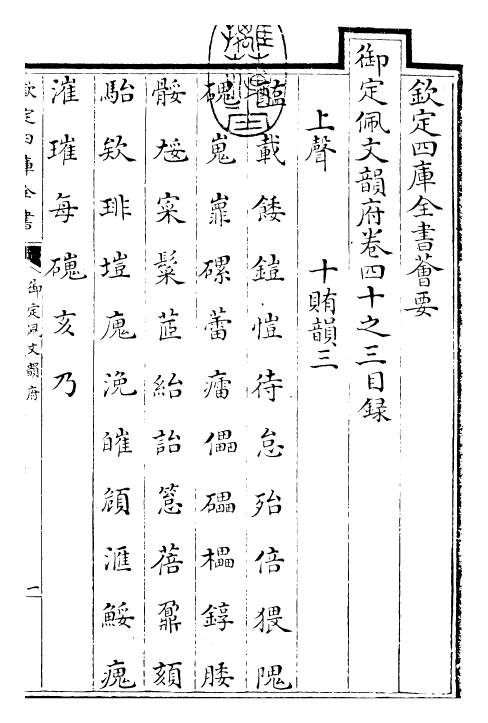 欽定四庫全書薈要
御定佩文韻府卷四十之三目録
上聲 十賄韻三
醢載餧鎧愷待怠殆倍猥隗
磈嵬嶵磥蕾癗儡礧櫑錞腇
骽㞂寀䰂茝紿詒蓓鼐頦
駘欸琲塏廆浼皠頠滙鮾瘣
漼璀每磈亥乃
欽定四庫全書
御定佩文韻府
一